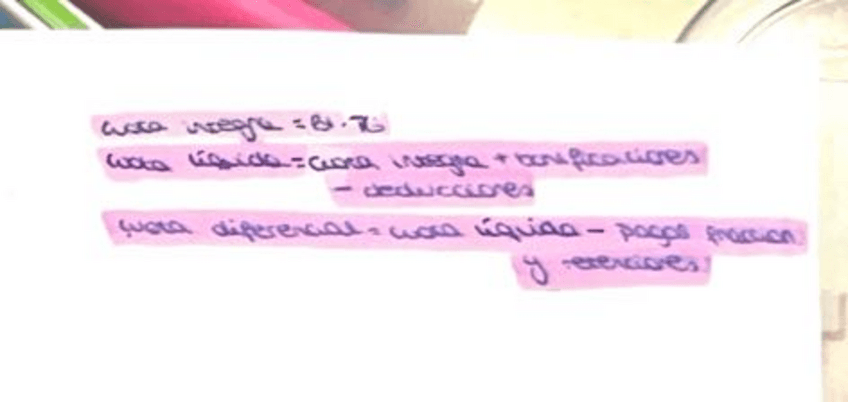 cuota integra = BI · TG
cuota líquida = cuota integra + bonificaciones
- deducciones
cuota diferencial = cuota líquida - pagos fraccion
y retenciones